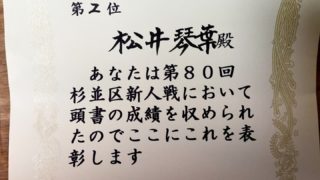 第2位
松井琴葉殿
あなたは第80回
杉並区新人戦において
頭書の成績を収められ
たのでここにこれを表
彰します